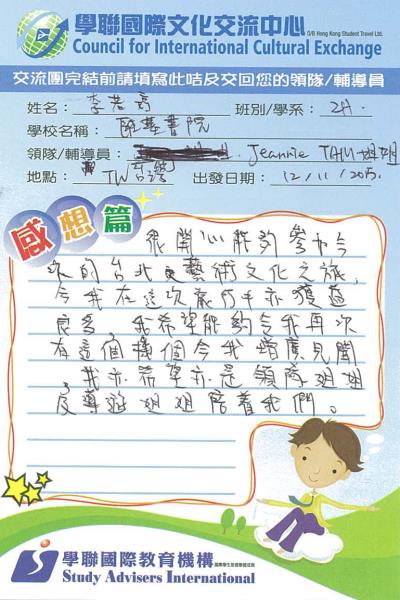 學聯國際文化交流中心
O/B Hong Kong Student Travel Ltd.
Council for International Cultural Exchange
交流團完結前請填寫此咭及交回您的領隊/輔導員
姓名： 李
班別/學系： 2H.
學校名稱： 匯基書院
領隊/輔導員： Jeannie TAM 姐姐
地點： TW 台灣
出發日期： 12/11/2015.
感想篇
很開心能夠參加今
次的台北藝術文化之旅，
令我在這次旅行中亦獲益
良多，我希望能夠令我再次
有這個機個令我增廣見聞
，我亦希望亦是領隊姐姐
及導遊姐姐陪着我們。
學聯國際教育機構
Study Advisers International